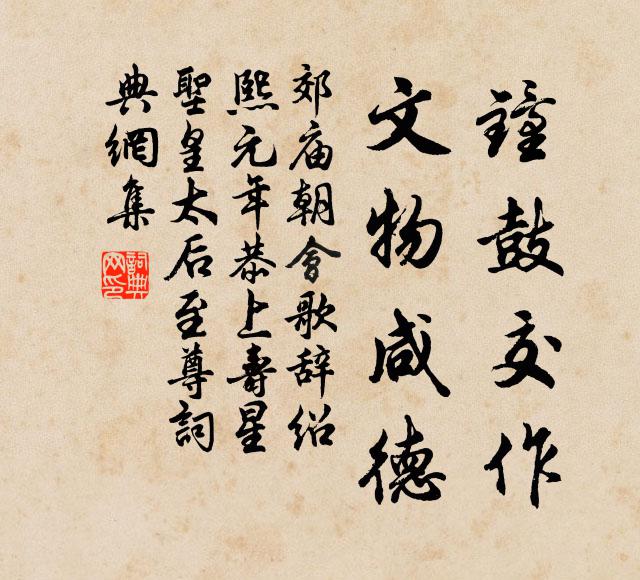 鐘鼓交作
文物咸德
郊庙朝會歌辞绍
熙元年恭上壽星
聖皇太后至尊詞
典網集
詞典
网印